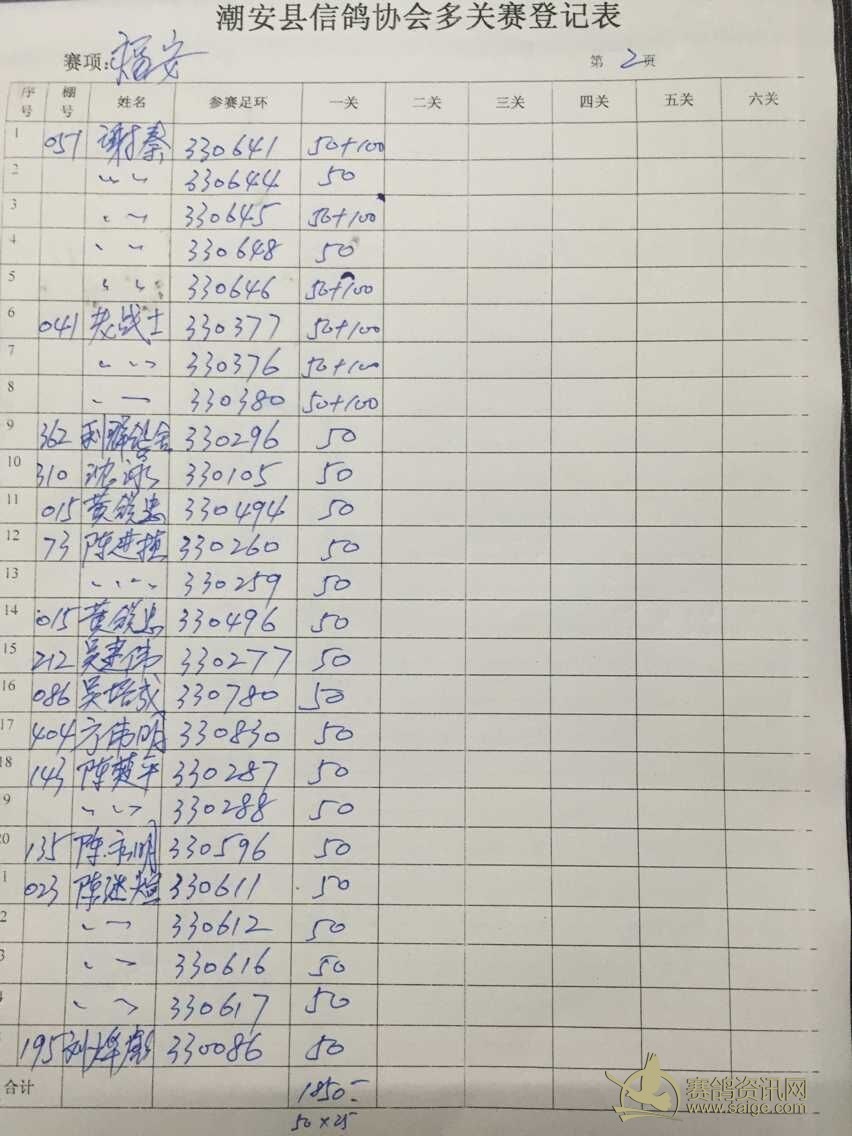 潮安县信鸽协会多关赛登记表
赛项: 福安 第 2 页
序号 棚号 姓名 参赛足环 一关 二关 三关 四关 五关 六关
1 057 谢秦 330641 50+100
2 〃 〃 330644 50
3 〃 〃 330645 50+100
4 〃 〃 330648 50
5 〃 〃 330646 50+100
6 041 战士 330377 50+100
7 〃 〃 330376 50+100
8 〃 〃 330380 50+100
9 362 利群鸽舍 330296 50
10 310 沈 330105 50
11 015 黄锐忠 330494 50
12 73 陈进植 330260 50
13 〃 〃 330259 50
14 015 黄锐忠 330496 50
15 212 吴建伟 330277 50
16 086 吴培成 330780 50
17 404 方伟明 330830 50
18 143 陈楚平 330287 50
9 〃 〃 330288 50
20 135 陈明 330596 50
1 023 陈 330611 50
2 〃 〃 330612 50
3 〃 〃 330616 50
4 〃 〃 330617 50
195 刘 330086 50
合计 1850-
50×25
赛鸽资讯网
www.saige.com